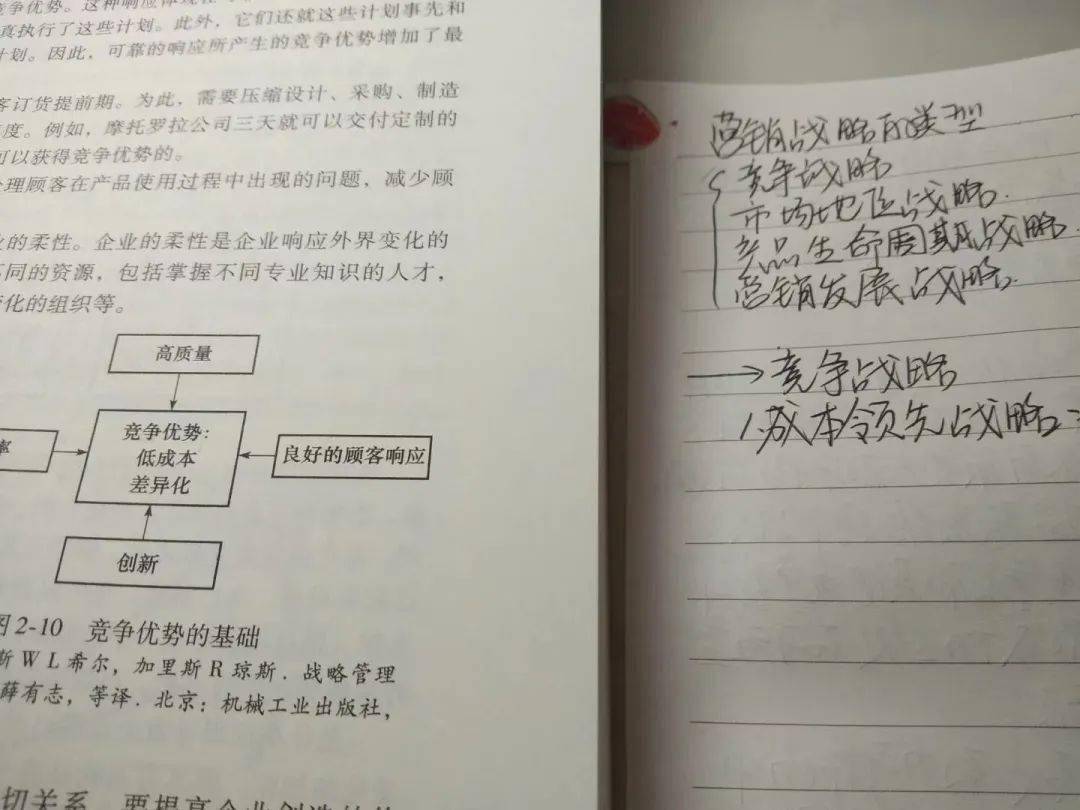 竞争优势。这种响应体现在
真执行了这些计划。此外，它们还就这些计划事先和
计划。因此，可靠的响应所产生的竞争优势增加了最
客订货提前期。为此，需要压缩设计、采购、制造
度。例如，摩托罗拉公司三天就可以交付定制的
可以获得竞争优势的。
处理顾客在产品使用过程中出现的问题，减少顾
业的柔性。企业的柔性是企业响应外界变化的
不同的资源，包括掌握不同专业知识的人才，
变化的组织等。
高质量
率
竞争优势：
低成本
差异化
良好的顾客响应
创新
图2-10 竞争优势的基础
斯 W L 希尔，加里斯 R 琼斯．战略管理
薛有志，等译．北京：机械工业出版社，
切关系，要提高企业创造的
营销战略的类型
竞争战略
市场地位战略
产品生命周期战略
营销发展战略
→竞争战略
1.成本领先战略：